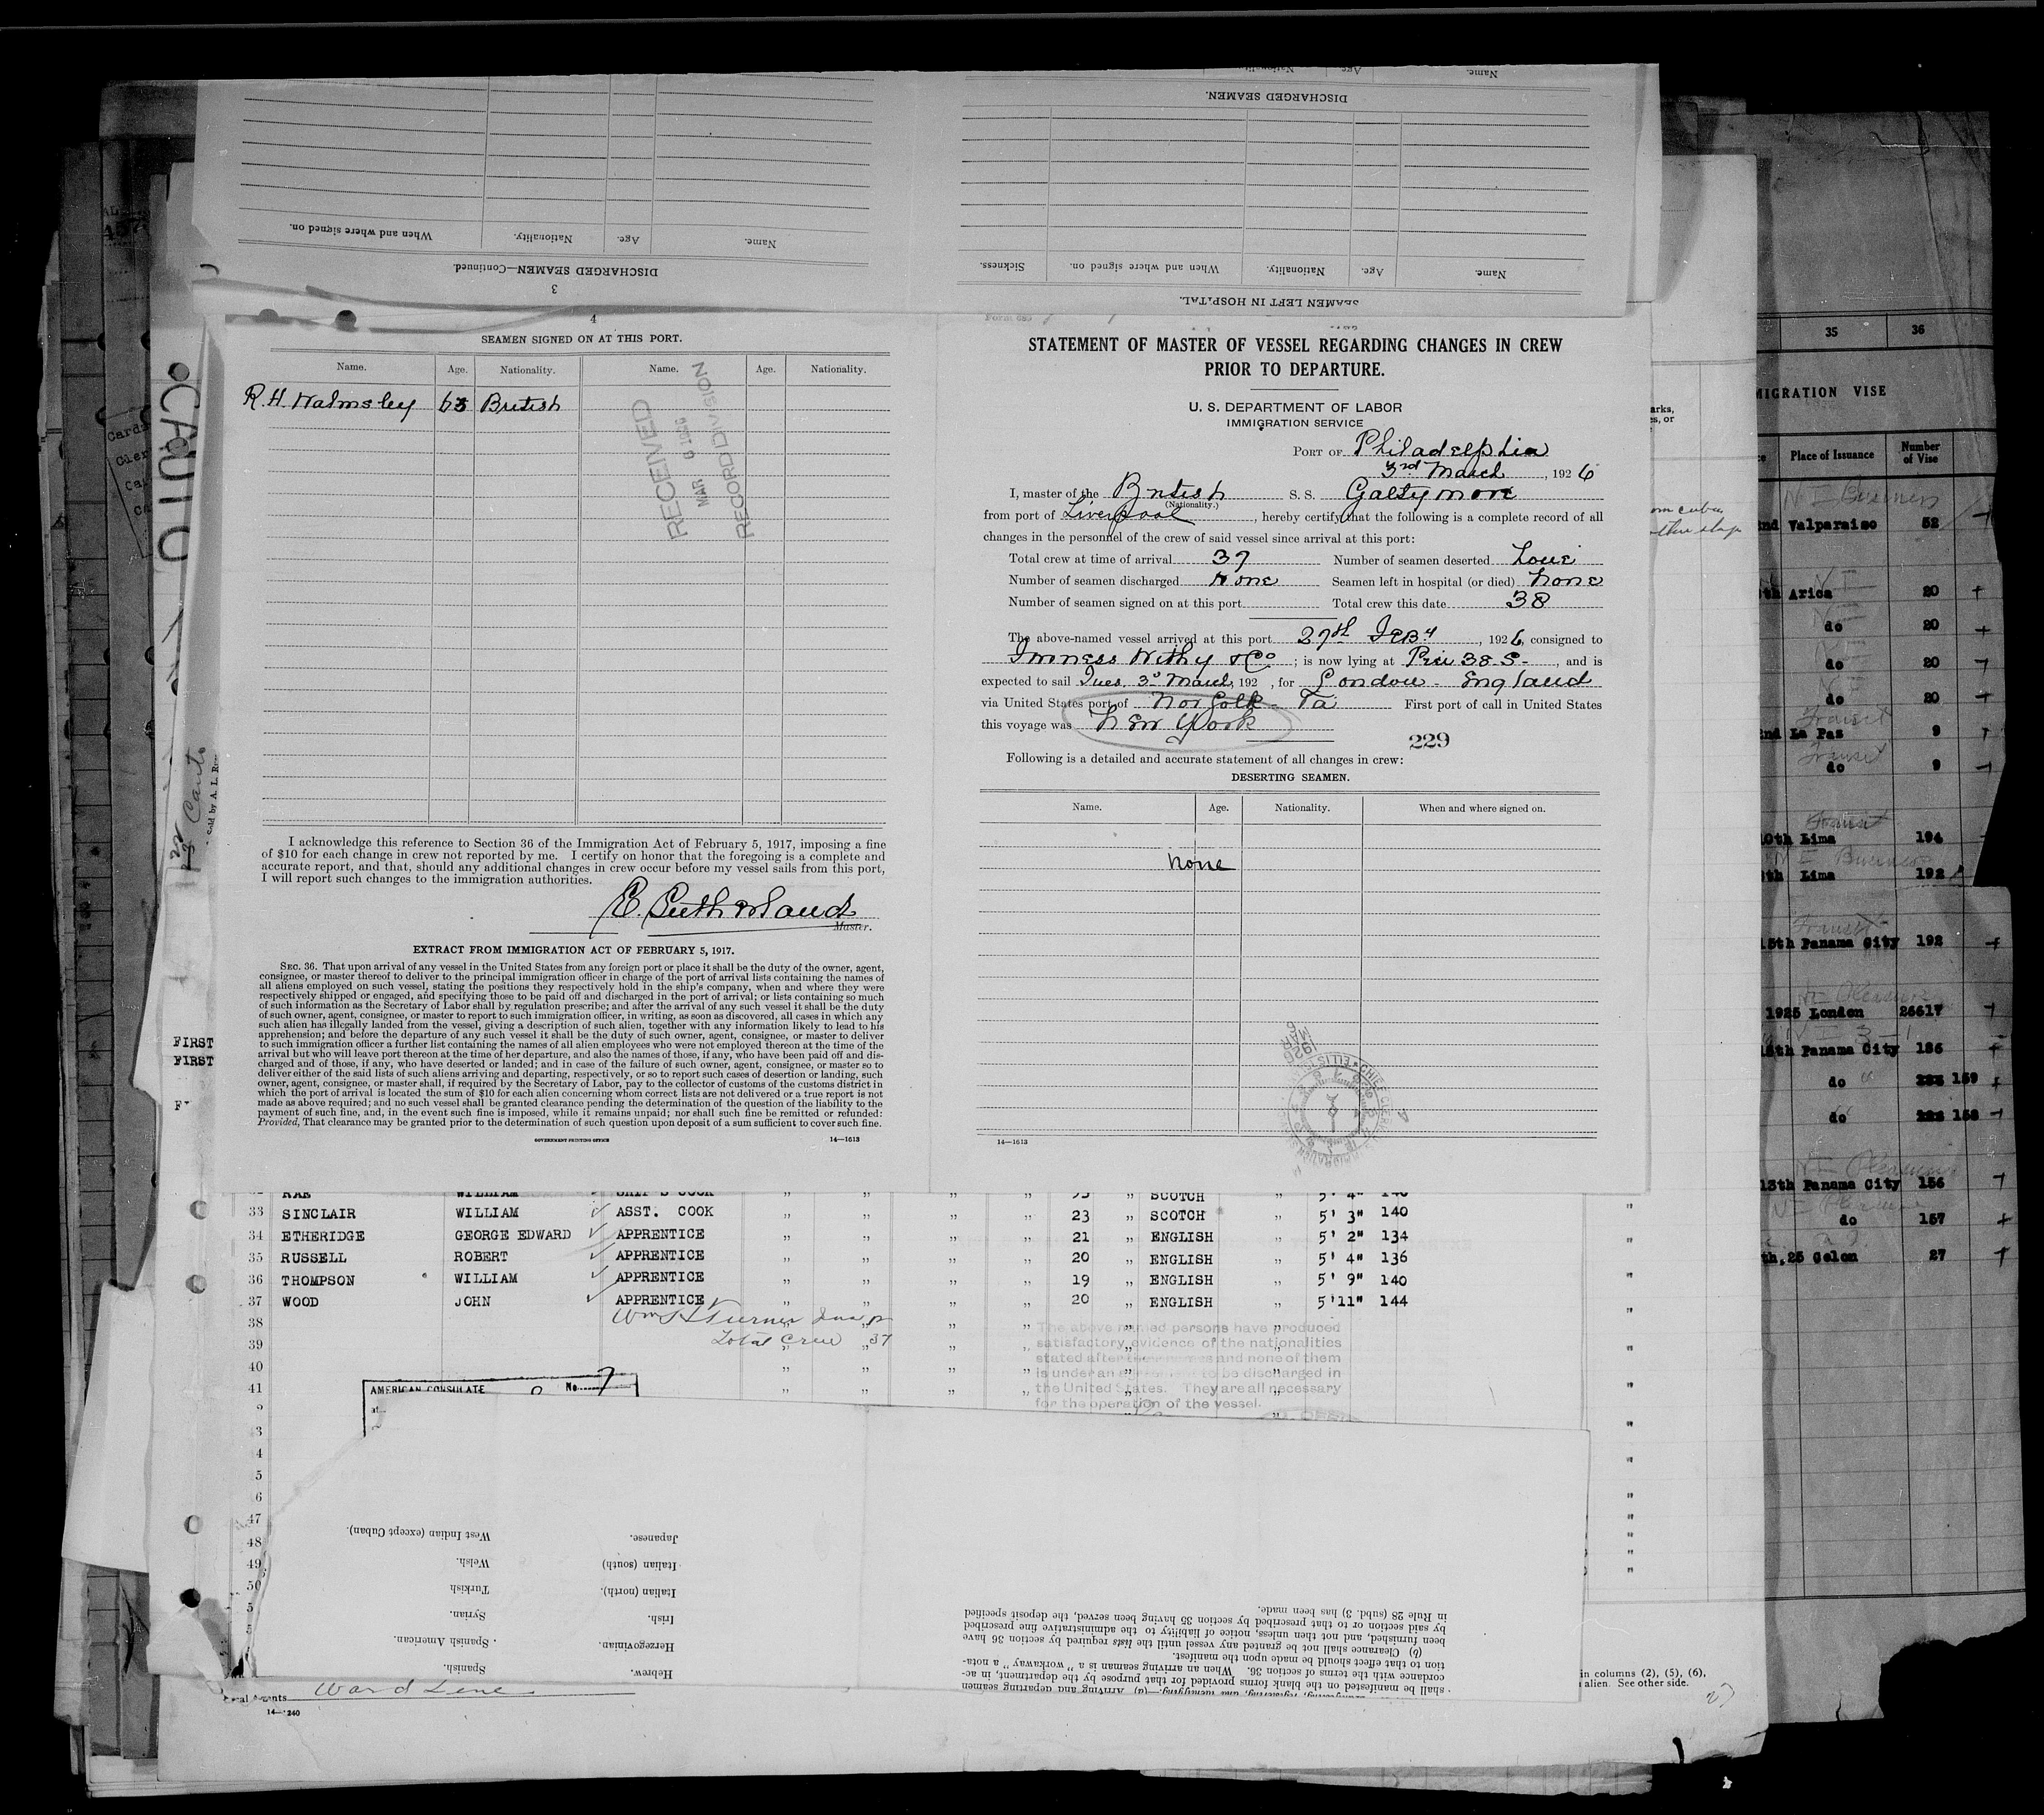 DISCHARGED SEAMEN.
Name.
Age.
Nationality.
When and where signed on.
DISCHARGED SEAMEN—Continued.
3
Name.
Age.
Nationality.
When and where signed on.
Sickness.
SEAMEN LEFT IN HOSPITAL.
4
SEAMEN SIGNED ON AT THIS PORT.
Name. Age. Nationality. Name. Age. Nationality.
R. H. Walmsley 63 British
RECEIVED
MAR 6 1926
RECORD DIVISION
I acknowledge this reference to Section 36 of the Immigration Act of February 5, 1917, imposing a fine
of $10 for each change in crew not reported by me. I certify on honor that the foregoing is a complete and
accurate report, and that, should any additional changes in crew occur before my vessel sails from this port,
I will report such changes to the immigration authorities.
E. Sutherland
Master.
EXTRACT FROM IMMIGRATION ACT OF FEBRUARY 5, 1917.
SEC. 36. That upon arrival of any vessel in the United States from any foreign port or place it shall be the duty of the owner, agent,
consignee, or master thereof to deliver to the principal immigration officer in charge of the port of arrival lists containing the names of
all aliens employed on such vessel, stating the positions they respectively hold in the ship's company, when and where they were
respectively shipped or engaged, and specifying those to be paid off and discharged in the port of arrival; or lists containing so much
of such information as the Secretary of Labor shall by regulation prescribe; and after the arrival of any such vessel it shall be the duty
of such owner, agent, consignee, or master to report to such immigration officer, in writing, as soon as discovered, all cases in which any
such alien has illegally landed from the vessel, giving a description of such alien, together with any information likely to lead to his
apprehension; and before the departure of any such vessel it shall be the duty of such owner, agent, consignee, or master to deliver
to such immigration officer a further list containing the names of all alien employees who were not employed thereon at the time of the
arrival but who will leave port thereon at the time of her departure, and also the names of those, if any, who have been paid off and dis-
charged and of those, if any, who have deserted or landed; and in case of the failure of such owner, agent, consignee, or master so to
deliver either of the said lists of such aliens arriving and departing, respectively, or so to report such cases of desertion or landing, such
owner, agent, consignee, or master shall, if required by the Secretary of Labor, pay to the collector of customs of the customs district in
which the port of arrival is located the sum of $10 for each alien concerning whom correct lists are not delivered or a true report is not
made as above required; and no such vessel shall be granted clearance pending the determination of the question of the liability to the
payment of such fine, and, in the event such fine is imposed, while it remains unpaid; nor shall such fine be remitted or refunded:
Provided, That clearance may be granted prior to the determination of such question upon deposit of a sum sufficient to cover such fine.
GOVERNMENT PRINTING OFFICE 14—1613
STATEMENT OF MASTER OF VESSEL REGARDING CHANGES IN CREW
PRIOR TO DEPARTURE.
U. S. DEPARTMENT OF LABOR
IMMIGRATION SERVICE
PORT OF Philadelphia
3rd March, 1926
I, master of the British S. S. Galtymore
(Nationality.)
from port of Liverpool, hereby certify that the following is a complete record of all
changes in the personnel of the crew of said vessel since arrival at this port:
Total crew at time of arrival 37 Number of seamen deserted
Number of seamen discharged None Seamen left in hospital (or died) None
Number of seamen signed on at this port Total crew this date 38
The above-named vessel arrived at this port 27th Feby, 1926, consigned to
Furness Withy & Co; is now lying at Pier 38 S., and is
expected to sail Tues. 3d March, 192 , for London - England
via United States port of Norfolk - Va First port of call in United States
this voyage was New York
229
Following is a detailed and accurate statement of all changes in crew:
DESERTING SEAMEN.
Name. Age. Nationality. When and where signed on.
None
14—1613
1926
MAR
CHIEF CLERK
ELLIS
35 36
IMMIGRATION VISE
Place of Issuance Number of Vise
Valparaiso 52
Arica 20
do 20
do 20
do 20
La Pas 9
do 9
10th Lima 194
Lima 192
15th Panama City 192
1925 London 26617
Panama City 186
do 159
do 158
13th Panama City 156
do 157
th,25 Colon 27
CAUTIO
FIRST
FIRST
RAE WILLIAM SHIP'S COOK " " " " " SCOTCH " 5' 4" 140
33 SINCLAIR WILLIAM ASST. COOK " " " " 23 " SCOTCH " 5' 3" 140
34 ETHERIDGE GEORGE EDWARD APPRENTICE " " " " 21 " ENGLISH " 5' 2" 134
35 RUSSELL ROBERT APPRENTICE " " " " 20 " ENGLISH " 5' 4" 136
36 THOMPSON WILLIAM APPRENTICE " " " " 19 " ENGLISH " 5' 9" 140
37 WOOD JOHN APPRENTICE " " " " 20 " ENGLISH " 5'11" 144
38 Wm H Turner
39 Total Crew 37
40
41
The above named persons have produced
satisfactory evidence of the nationalities
stated after their names and none of them
is under an agreement to be discharged in
the United States. They are all necessary
for the operation of the vessel.
AMERICAN CONSULATE No. 7
at
3
4
5
6
47
48
49
50
West Indian (except Cuban).
Welsh.
Turkish
Syrian.
Spanish American.
Spanish.
Japanese.
Italian (south)
Italian (north).
Irish.
Herzegovinian.
Hebrew.
shall be manifested on the blank forms provided for that purpose by the department, in ac-
cordance with the terms of section 36. When an arriving seaman is a "workaway" a nota-
tion to that effect should be made upon the manifest.
(b) Clearance shall not be granted any vessel until the lists required by section 36 have
been furnished, and not then unless, notice of liability to the administrative fine prescribed
by said section or to that prescribed by section 35 having been served, the deposit specified
in Rule 28 (subd. 3) has been made.
Agents Ward Line
14—240
in columns (2), (5), (6),
alien. See other side.